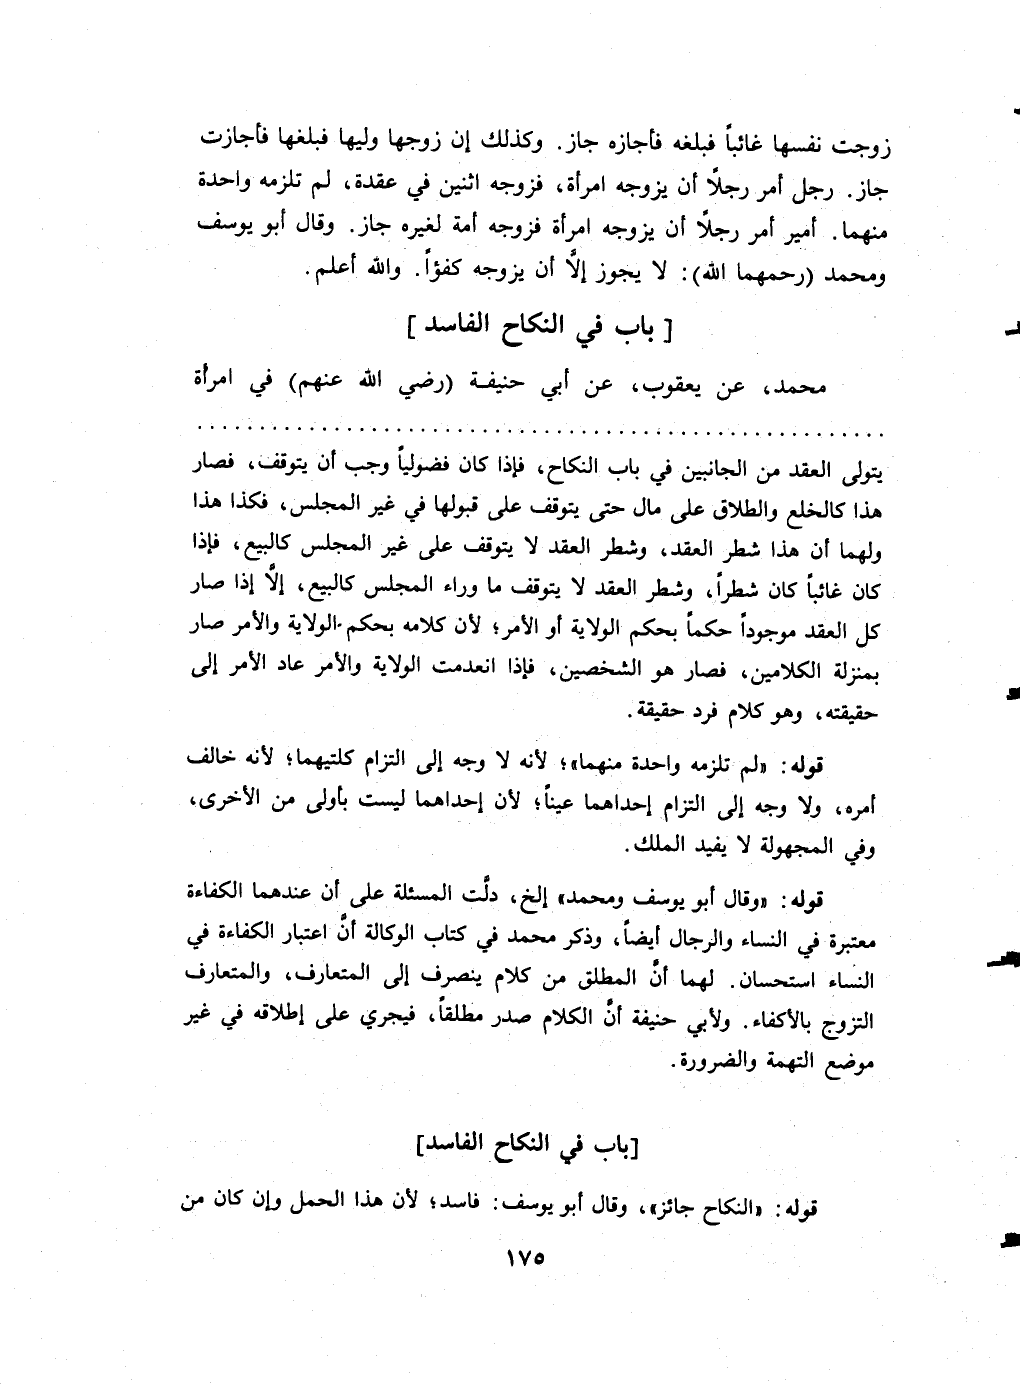 زوجت نفسها غائباً فبلغه فأجازه جاز. وكذلك إن زوجها وليها فبلغها فأجازت
جاز. رجل أمر رجلاً أن يزوجه امرأة، فزوجه اثنين في عقدة، لم تلزمه واحدة
منهما. أمير أمر رجلاً أن يزوجه امرأة فزوجه أمة لغيره جاز. وقال أبو يوسف
ومحمد (رحمهما الله): لا يجوز إلَّا أن يزوجه كفؤاً. والله أعلم.
[ باب في النكاح الفاسد ]
محمد، عن يعقوب، عن أبي حنيفة (رضي الله عنهم) في امرأة
يتولى العقد من الجانبين في باب النكاح، فإذا كان فضولياً وجب أن يتوقف، فصار
هذا كالخلع والطلاق على مال حتى يتوقف على قبولها في غير المجلس، فكذا هذا
ولهما أن هذا شطر العقد، وشطر العقد لا يتوقف على غير المجلس كالبيع، فإذا
كان غائباً كان شطراً، وشطر العقد لا يتوقف ما وراء المجلس كالبيع، إلَّا إذا صار
كل العقد موجوداً حكماً بحكم الولاية أو الأمر؛ لأن كلامه بحكم الولاية والأمر صار
بمنزلة الكلامين، فصار هو الشخصين، فإذا انعدمت الولاية والأمر عاد الأمر إلى
حقيقته، وهو كلام فرد حقيقة.
قوله: «لم تلزمه واحدة منهما»؛ لأنه لا وجه إلى التزام كلتيهما؛ لأنه خالف
أمره، ولا وجه إلى التزام إحداهما عيناً؛ لأن إحداهما ليست بأولى من الأخرى،
وفي المجهولة لا يفيد الملك.
قوله: «وقال أبو يوسف ومحمد» إلخ، دلَّت المسئلة على أن عندهما الكفاءة
معتبرة في النساء والرجال أيضاً، وذكر محمد في كتاب الوكالة أنَّ اعتبار الكفاءة في
النساء استحسان. لهما أنَّ المطلق من كلام ينصرف إلى المتعارف، والمتعارف
التزوج بالأكفاء. ولأبي حنيفة أنَّ الكلام صدر مطلقاً، فيجري على إطلاقه في غير
موضع التهمة والضرورة.
[باب في النكاح الفاسد]
قوله: «النكاح جائز»، وقال أبو يوسف: فاسد؛ لأن هذا الحمل وإن كان من
١٧٥